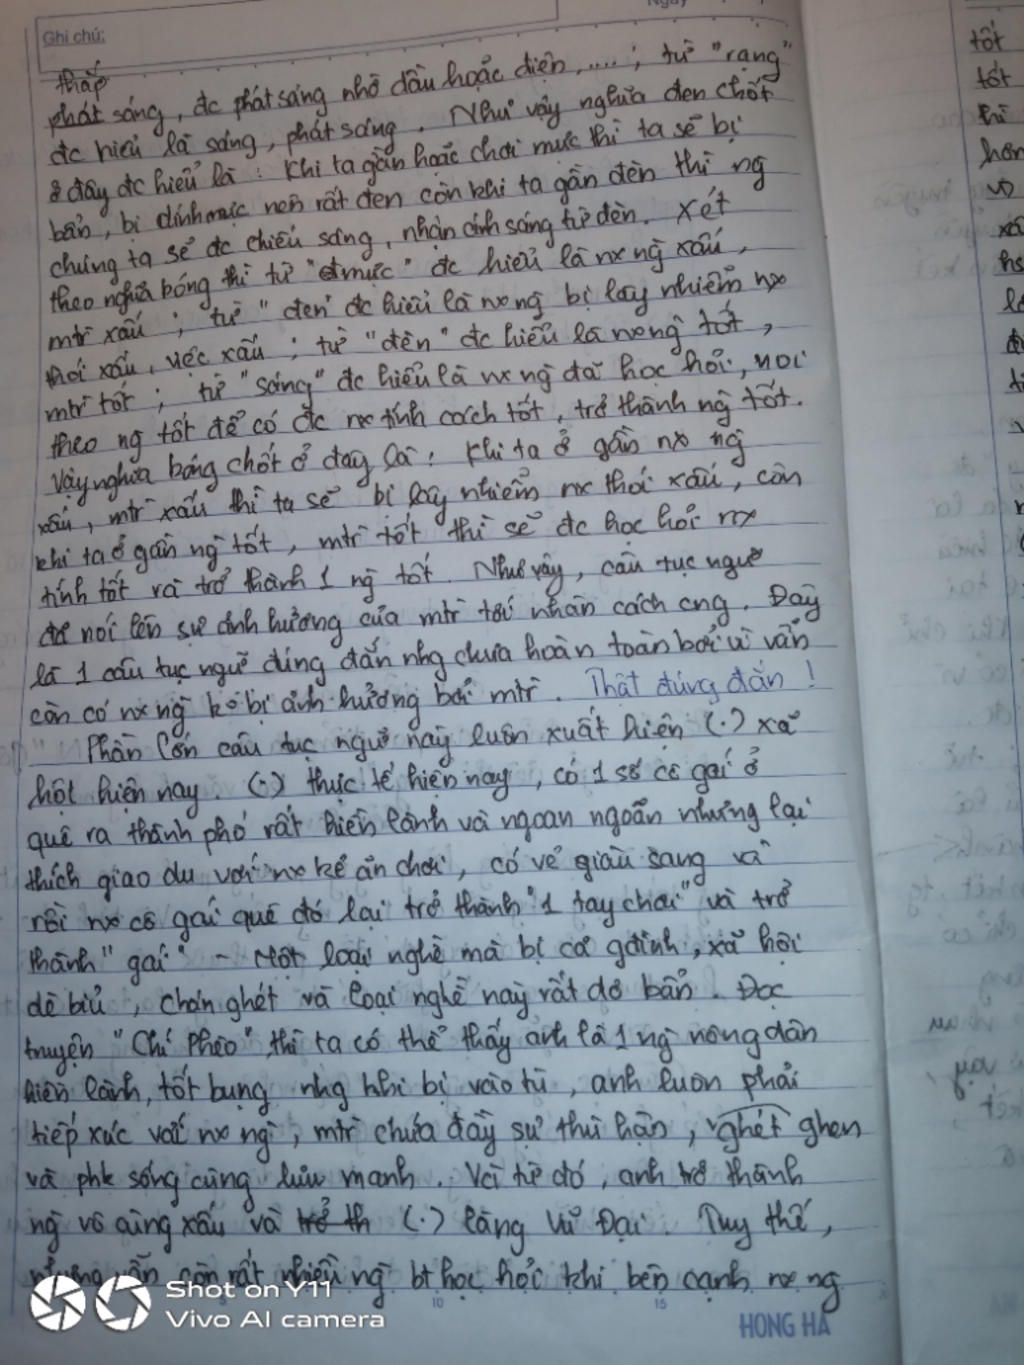 Ghi chú:
Ngày
thắp
phát sáng, đc phát sáng nhờ dầu hoặc điện,....; từ "rạng"
đc hiểu là sáng, phát sáng. Như vậy nghĩa đen chốt
ở đây đc hiểu là: Khi ta gần hoặc chơi mực thì ta sẽ bị
bẩn, bị dính mực nên rất đen còn khi ta gần đèn thì ng
chúng ta sẽ đc chiếu sáng, nhận ánh sáng từ đèn. Xét
theo nghĩa bóng thì từ "mực" đc hiểu là nx ng xấu,
mtr xấu; từ "đen" đc hiểu là nx ng bị lây nhiễm nx
thói xấu, việc xấu; từ "đèn" đc hiểu là nx ng tốt,
mtr tốt; từ "sáng" đc hiểu là nx ng đã học hỏi, noi
theo ng tốt để có đc nx tính cách tốt, trở thành ng tốt.
Vậy nghĩa bóng chốt ở đây là: Khi ta ở gần nx ng
xấu, mtr xấu thì ta sẽ bị lây nhiễm nx thói xấu, còn
khi ta ở gần ng tốt, mtr tốt thì sẽ đc học hỏi nx
tính tốt và trở thành 1 ng tốt. Như vậy, câu tục ngữ
đã nói lên sự ảnh hưởng của mtr tới nhân cách cng. Đây
là 1 câu tục ngữ đúng đắn nhg chưa hoàn toàn bởi vì vẫn
còn có nx ng ko bị ảnh hưởng bởi mtr. Thật đúng đắn!
Phần lớn câu tục ngữ này luôn xuất hiện (.) xã
hội hiện nay. (.) thực tế hiện nay, có 1 số cô gái ở
quê ra thành phố rất hiền lành và ngoan ngoãn nhưng lại
thích giao du với nx kẻ ăn chơi, có vẻ giàu sang và
rồi nx cô gái quê đó lại trở thành "1 tay chơi" và trở
thành "gái" - Một loại nghề mà bị cả gđình, xã hội
dè bỉu, chán ghét và loại nghề này rất dơ bẩn. Đọc
truyện "Chí Phèo" thì ta có thể thấy anh là 1 ng nông dân
hiền lành, tốt bụng nhg khi bị vào tù, anh luôn phải
tiếp xúc với nx ng, mtr chứa đầy sự thù hận, ghét ghen
và phk sống cùng lưu manh. Và từ đó, anh trở thành
ng vô cùng xấu và trở th (.) làng Vũ Đại. Tuy thế,
nhưng vẫn còn rất nhiều ng bt học hỏi khi bên cạnh nx ng
Shot on Y11
Vivo AI camera
10
15
HONG HA